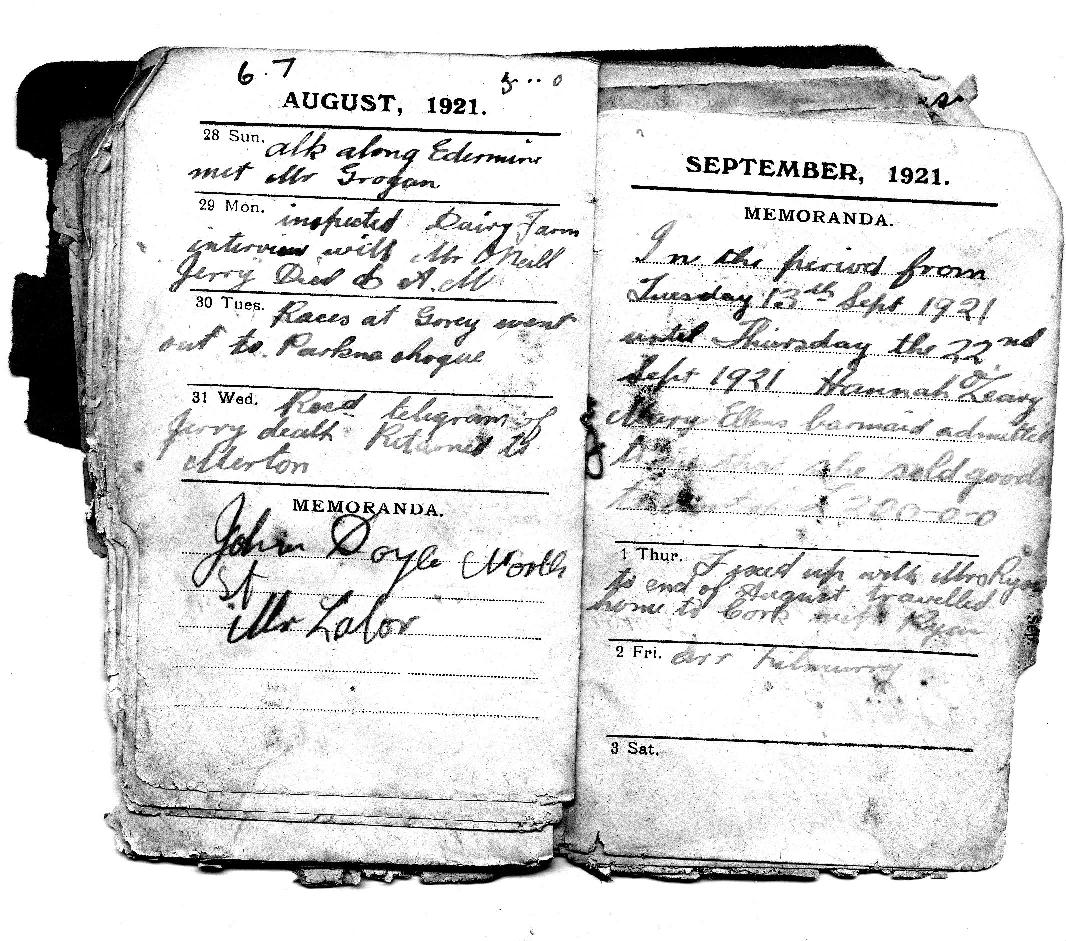 6.7
AUGUST, 1921.
28 Sun. alk along Edermine
met Mr Grogan
29 Mon. inspected Dairy Farm
interview with Mr O'Neill
Jerry Died 6 A.M
30 Tues. Races at Gorey went
out to Parkna shogue
31 Wed. Recd telegram of
Jerry death Returned to
Merton
MEMORANDA.
John Doyle North
St
Mr Lalor
SEPTEMBER, 1921.
MEMORANDA.
In the period from
Tuesday 13th Sept 1921
until Thursday the 22nd
Sept 1921 Hannah O'Leary
Mary Ellens barmaid admitted
that she sold goods
£200-0-0
1 Thur. up with Mrs Ryan
to end of August travelled
home to Cork with Ryan
2 Fri. arr Kilmurry
3 Sat.